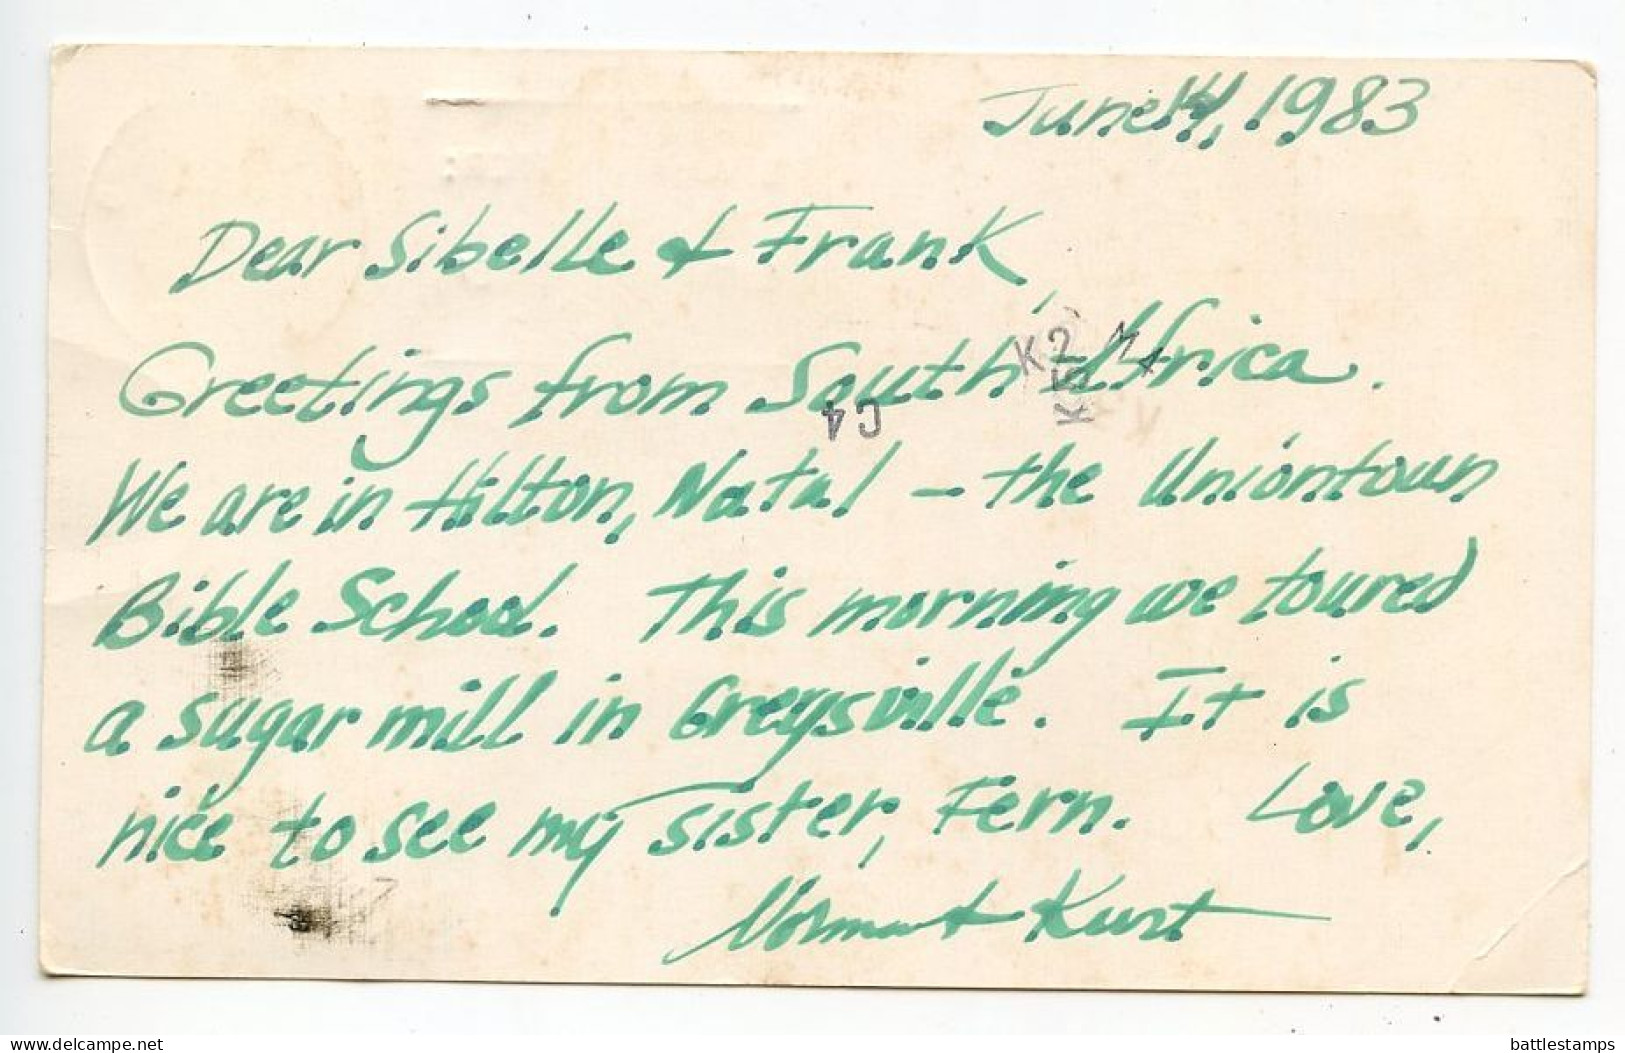 June 14, 1983
Dear Sibelle & Frank,
Greetings from South Africa.
We are in Hilton, Natal – the Uniontown
Bible School. This morning we toured
a sugar mill in Greysville. It is
nice to see my sister, Fern. Love,
& Kurt
K2
K5
C4
delcampe.net
battlestamps